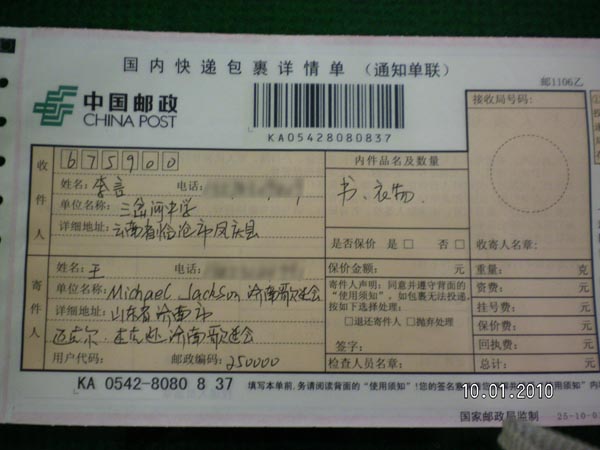 国内快递包裹详情单 （通知单联）
中国邮政
CHINA POST
KA05428080837
邮1106乙
接收局号码：
收件人
675900
姓名：李言 电话：
单位名称：三岔河中学
详细地址：云南省临沧市凤庆县
内件品名及数量
书、衣物
是否保价 是 □ 否 □
收寄人名章：
寄件人
姓名：王 电话：
单位名称：Michael Jackson 济南歌迷会
详细地址：山东省济南市
迈克尔·杰克逊济南歌迷会
用户代码： 邮政编码：250000
保价金额： 元
寄件人声明：同意并遵守背面的
“使用须知”，如包裹无法投递，
按如下选择处理：
□退还寄件人 □抛弃处理
签字：
检查人员名章：
重量： 克
资费： 元
挂号费： 元
保价费： 元
回执费： 元
总计： 元
KA 0542-8080 8 37
填写本单前，务请阅读背面的“使用须知”！您的签名意
10.01.2010
国家邮政局监制
25-10-0